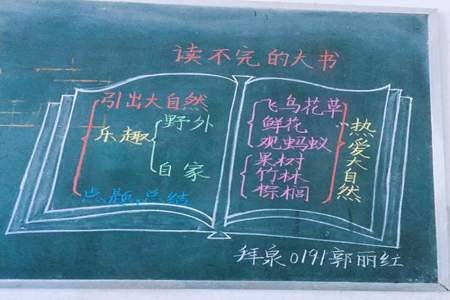 读不完的大书
引出大自然
乐趣
野外
自家
点题 总结
飞鸟花草
鲜花
观蚂蚁
果树
竹林
棕榈
热爱大自然
拜泉0191郭丽红